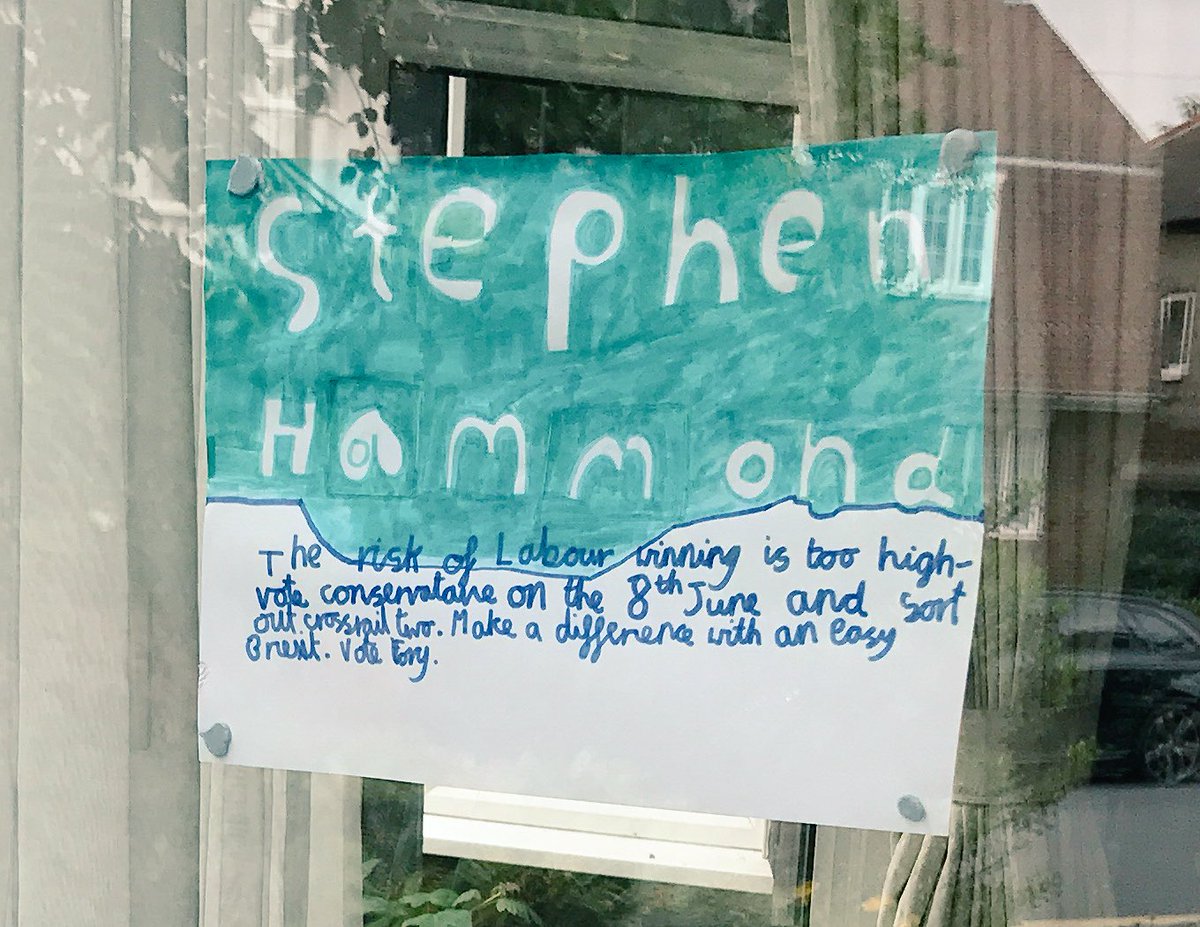 Stephen
Hammond
The risk of Labour winning is too high-
vote conservatave on the 8th June and sort
out crossrail two. Make a difference with an easy
Brexit. Vote Tory.